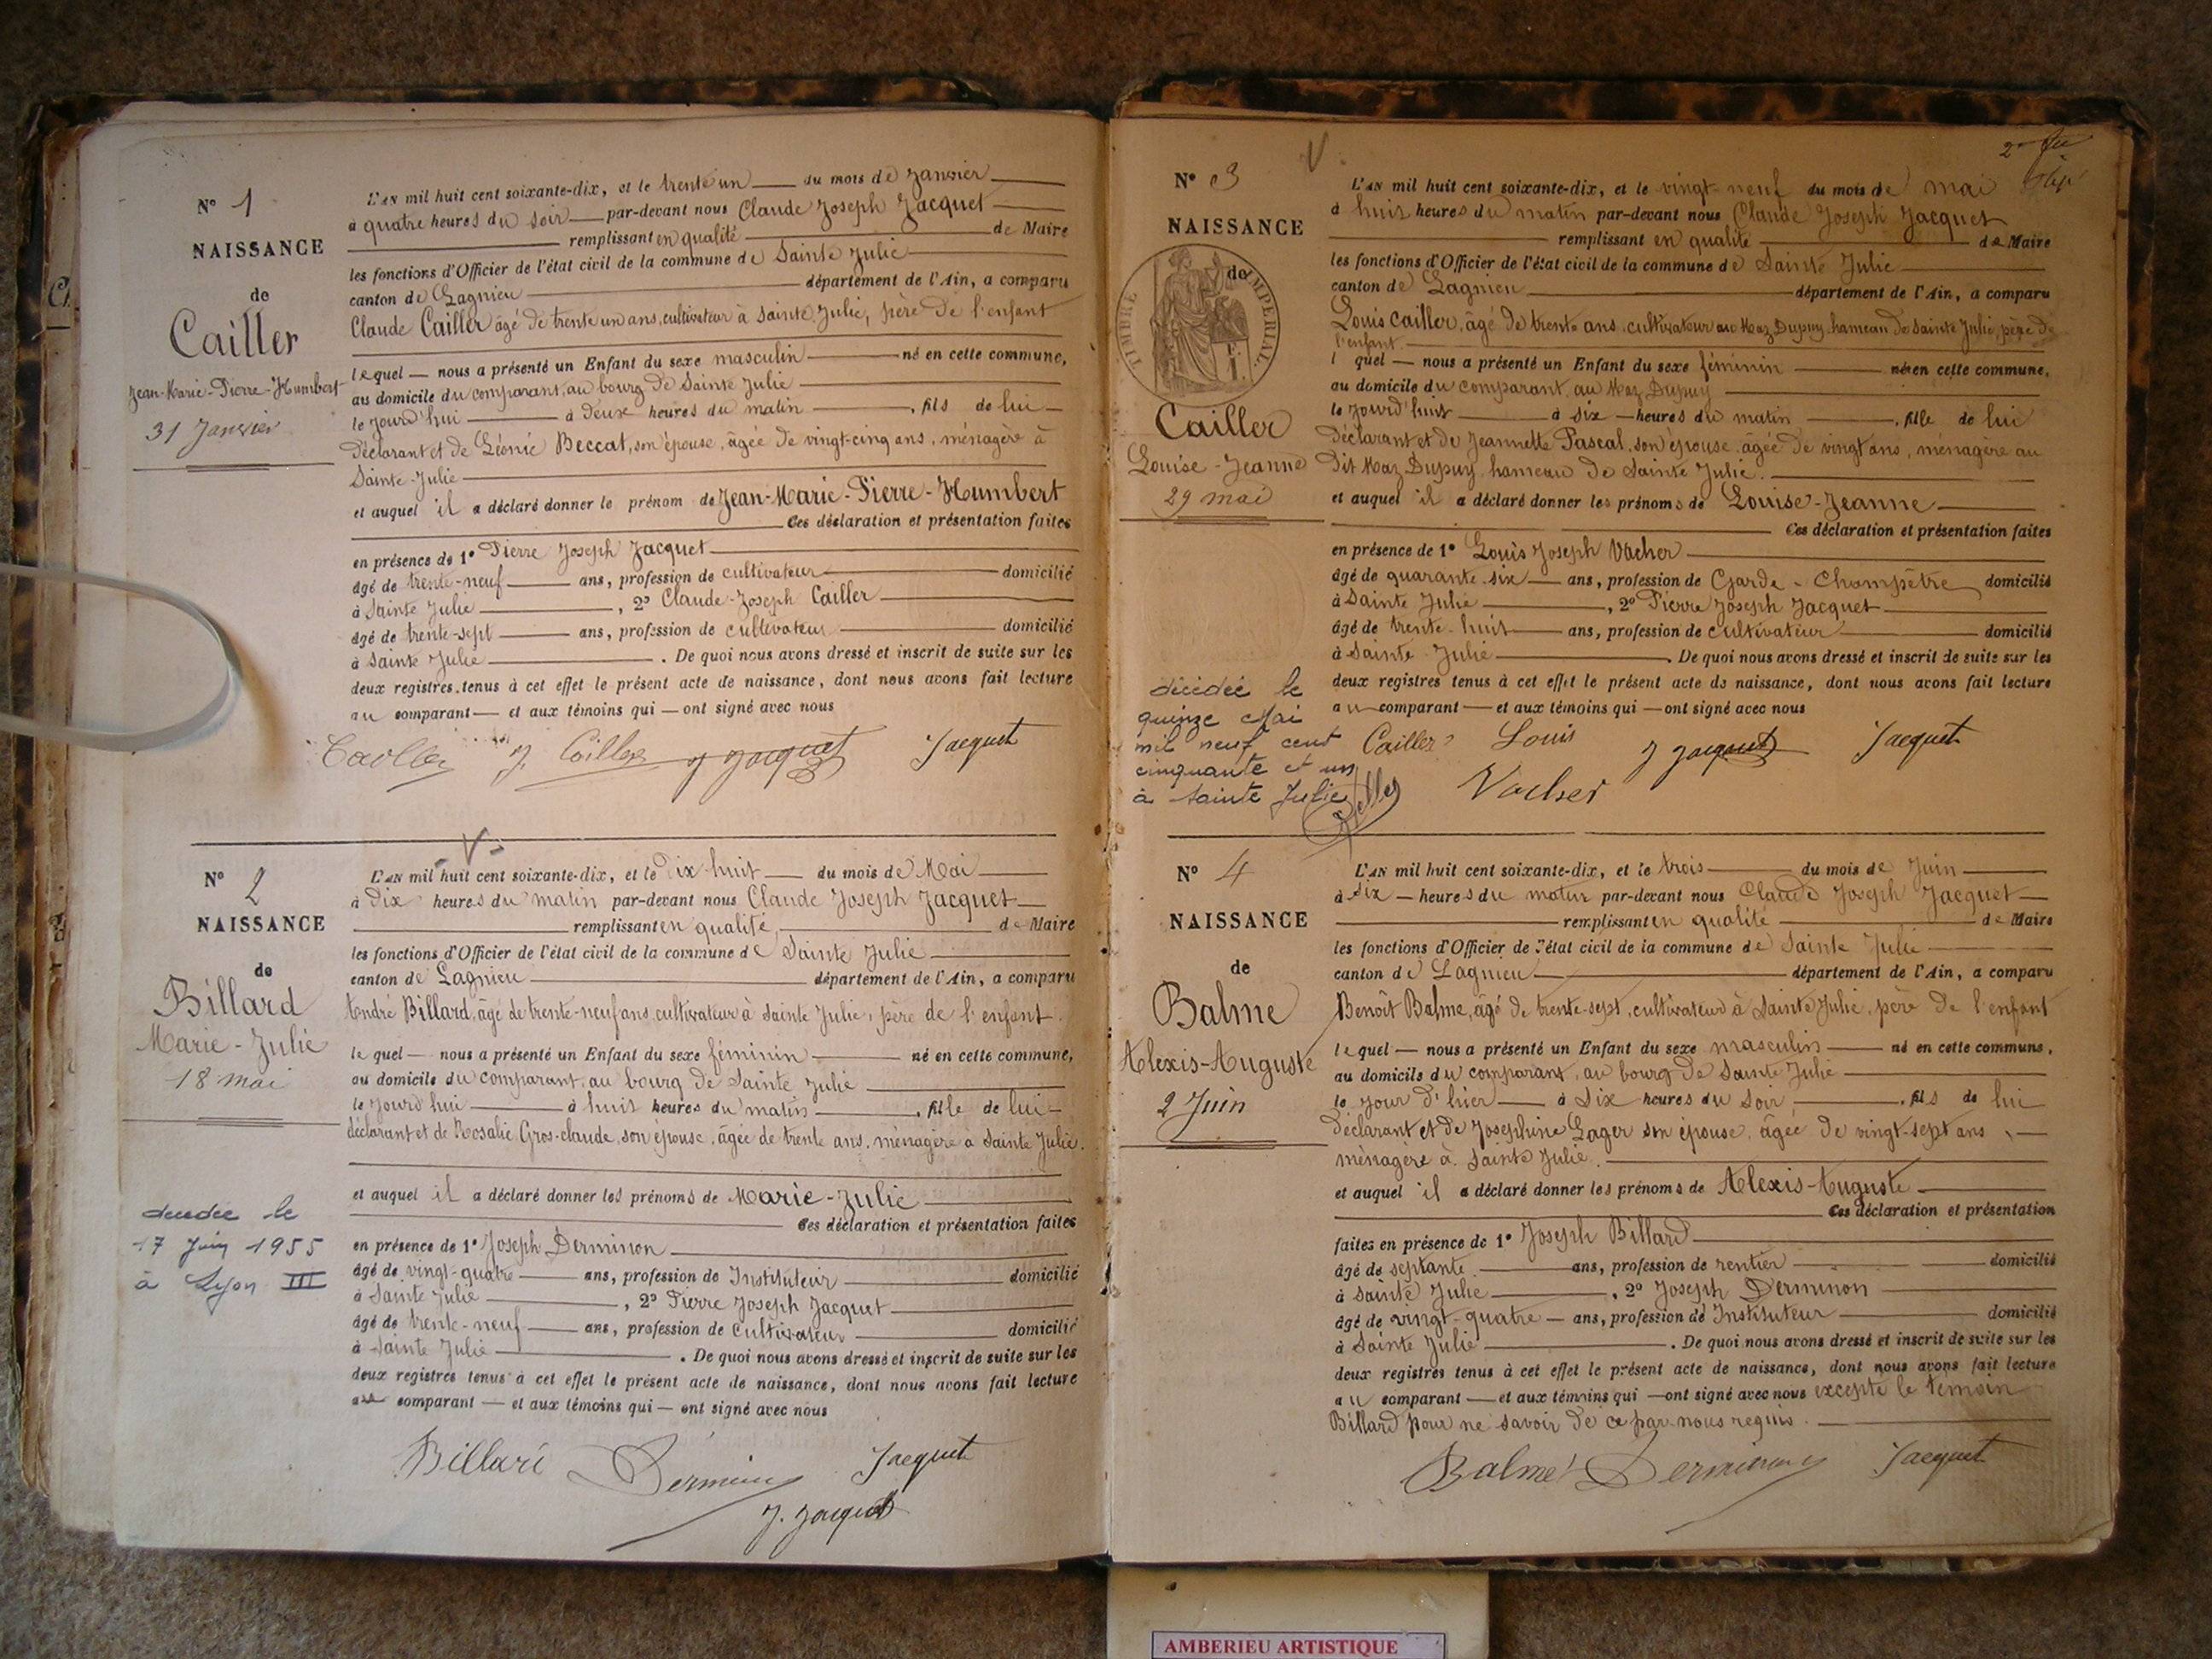 N° 1
NAISSANCE
de
Cailler
Jean-Marie-Pierre-Humbert
31 Janvier
L'AN mil huit cent soixante-dix, et le trente un du mois de Janvier
à quatre heures du soir par-devant nous Claude Joseph Jacquet
remplissant en qualité de Maire
les fonctions d'Officier de l'état civil de la commune de Sainte Julie
canton de Lagnieu département de l'Ain, a comparu
Claude Cailler âgé de trente un ans, cultivateur à Sainte Julie, père de l'enfant
lequel nous a présenté un Enfant du sexe masculin né en cette commune,
au domicile du comparant, au bourg de Sainte Julie
le jourd'hui à deux heures du matin, fils de lui
déclarant et de Léonie Beccat, son épouse, âgée de vingt-cinq ans, ménagère à
Sainte-Julie
et auquel il a déclaré donner le prénom de Jean-Marie-Pierre-Humbert
Ces déclaration et présentation faites
en présence de 1° Pierre Joseph Jacquet
âgé de trente-neuf ans, profession de cultivateur domicilié
à Sainte Julie, 2° Claude-Joseph Cailler
âgé de trente-sept ans, profession de cultivateur domicilié
à Sainte Julie. De quoi nous avons dressé et inscrit de suite sur les
deux registres tenus à cet effet le présent acte de naissance, dont nous avons fait lecture
au comparant et aux témoins qui ont signé avec nous
Cailler J. Cailler J Jacquet Jacquet
N° 2
NAISSANCE
de
Billard
Marie-Julie
18 mai
décédée le
17 Juin 1955
à Lyon III
L'AN mil huit cent soixante-dix, et le Dix huit du mois de Mai
à Dix heures du matin par-devant nous Claude Joseph Jacquet
remplissant en qualité de Maire
les fonctions d'Officier de l'état civil de la commune de Sainte Julie
canton de Lagnieu département de l'Ain, a comparu
André Billard, âgé de trente-neuf ans, cultivateur à Sainte Julie, père de l'enfant.
lequel nous a présenté un Enfant du sexe féminin né en cette commune,
au domicile du comparant, au bourg de Sainte Julie
le jourd'hui à huit heures du matin, fille de lui
déclarant et de Rosalie Gros-claude, son épouse, âgée de trente ans, ménagère à Sainte Julie.
et auquel il a déclaré donner les prénoms de Marie-Julie
Ces déclaration et présentation faites
en présence de 1° Joseph Derminon
âgé de vingt-quatre ans, profession de Instituteur domicilié
à Sainte Julie, 2° Pierre Joseph Jacquet
âgé de trente-neuf ans, profession de cultivateur domicilié
à Sainte Julie. De quoi nous avons dressé et inscrit de suite sur les
deux registres tenus à cet effet le présent acte de naissance, dont nous avons fait lecture
au comparant et aux témoins qui ont signé avec nous
Billard Derminon Jacquet
J. Jacquet
N° 3
NAISSANCE
de
TIMBRE IMPERIAL
Cailler
Louise-Jeanne
29 mai
décédée le
quinze Mai
mil neuf cent
cinquante et un
à Sainte Julie
L'AN mil huit cent soixante-dix, et le vingt-neuf du mois de mai
à huit heures du matin par-devant nous Claude Joseph Jacquet
remplissant en qualité de Maire
les fonctions d'Officier de l'état civil de la commune de Sainte Julie
canton de Lagnieu département de l'Ain, a comparu
Louis Cailler, âgé de trente ans, cultivateur au Maz Dupuy, hameau de Sainte Julie, père de
l'enfant.
lequel nous a présenté un Enfant du sexe féminin née en cette commune,
au domicile du comparant, au Maz Dupuy
le jourd'huit à six heures du matin, fille de lui
déclarant et de Jeannette Pascal, son épouse, âgée de vingt ans, ménagère au
dit Maz Dupuy, hameau de Sainte Julie.
et auquel il a déclaré donner les prénoms de Louise-Jeanne
Ces déclaration et présentation faites
en présence de 1° Louis Joseph Vacher
âgé de quarante-six ans, profession de Garde-Champêtre domicilié
à Sainte Julie, 2° Pierre Joseph Jacquet
âgé de trente-huit ans, profession de cultivateur domicilié
à Sainte Julie. De quoi nous avons dressé et inscrit de suite sur les
deux registres tenus à cet effet le présent acte de naissance, dont nous avons fait lecture
au comparant et aux témoins qui ont signé avec nous
Cailler Louis J Jacquet Jacquet
Vacher
N° 4
NAISSANCE
de
Balme
Alexis-Auguste
2 Juin
L'AN mil huit cent soixante-dix, et le trois du mois de Juin
à six heures du matin par-devant nous Claude Joseph Jacquet
remplissant en qualité de Maire
les fonctions d'Officier de l'état civil de la commune de Sainte Julie
canton de Lagnieu département de l'Ain, a comparu
Benoît Balme, âgé de trente-sept, cultivateur à Sainte Julie, père de l'enfant
lequel nous a présenté un Enfant du sexe masculin né en cette commune,
au domicile du comparant, au bourg de Sainte Julie
le jour d'hier à six heures du soir, fils de lui
déclarant et de Josephine Lager son épouse, âgée de vingt-sept ans,
ménagère à Sainte Julie.
et auquel il a déclaré donner les prénoms de Alexis-Auguste
Ces déclaration et présentation
faites en présence de 1° Joseph Billard
âgé de septante ans, profession de rentier domicilié
à Sainte Julie, 2° Joseph Derminon
âgé de vingt-quatre ans, profession de Instituteur domicilié
à Sainte Julie. De quoi nous avons dressé et inscrit de suite sur les
deux registres tenus à cet effet le présent acte de naissance, dont nous avons fait lecture
au comparant et aux témoins qui ont signé avec nous excepté le témoin
Billard pour ne savoir de ce par nous requis.
Balme Derminon Jacquet
AMBERIEU ARTISTIQUE